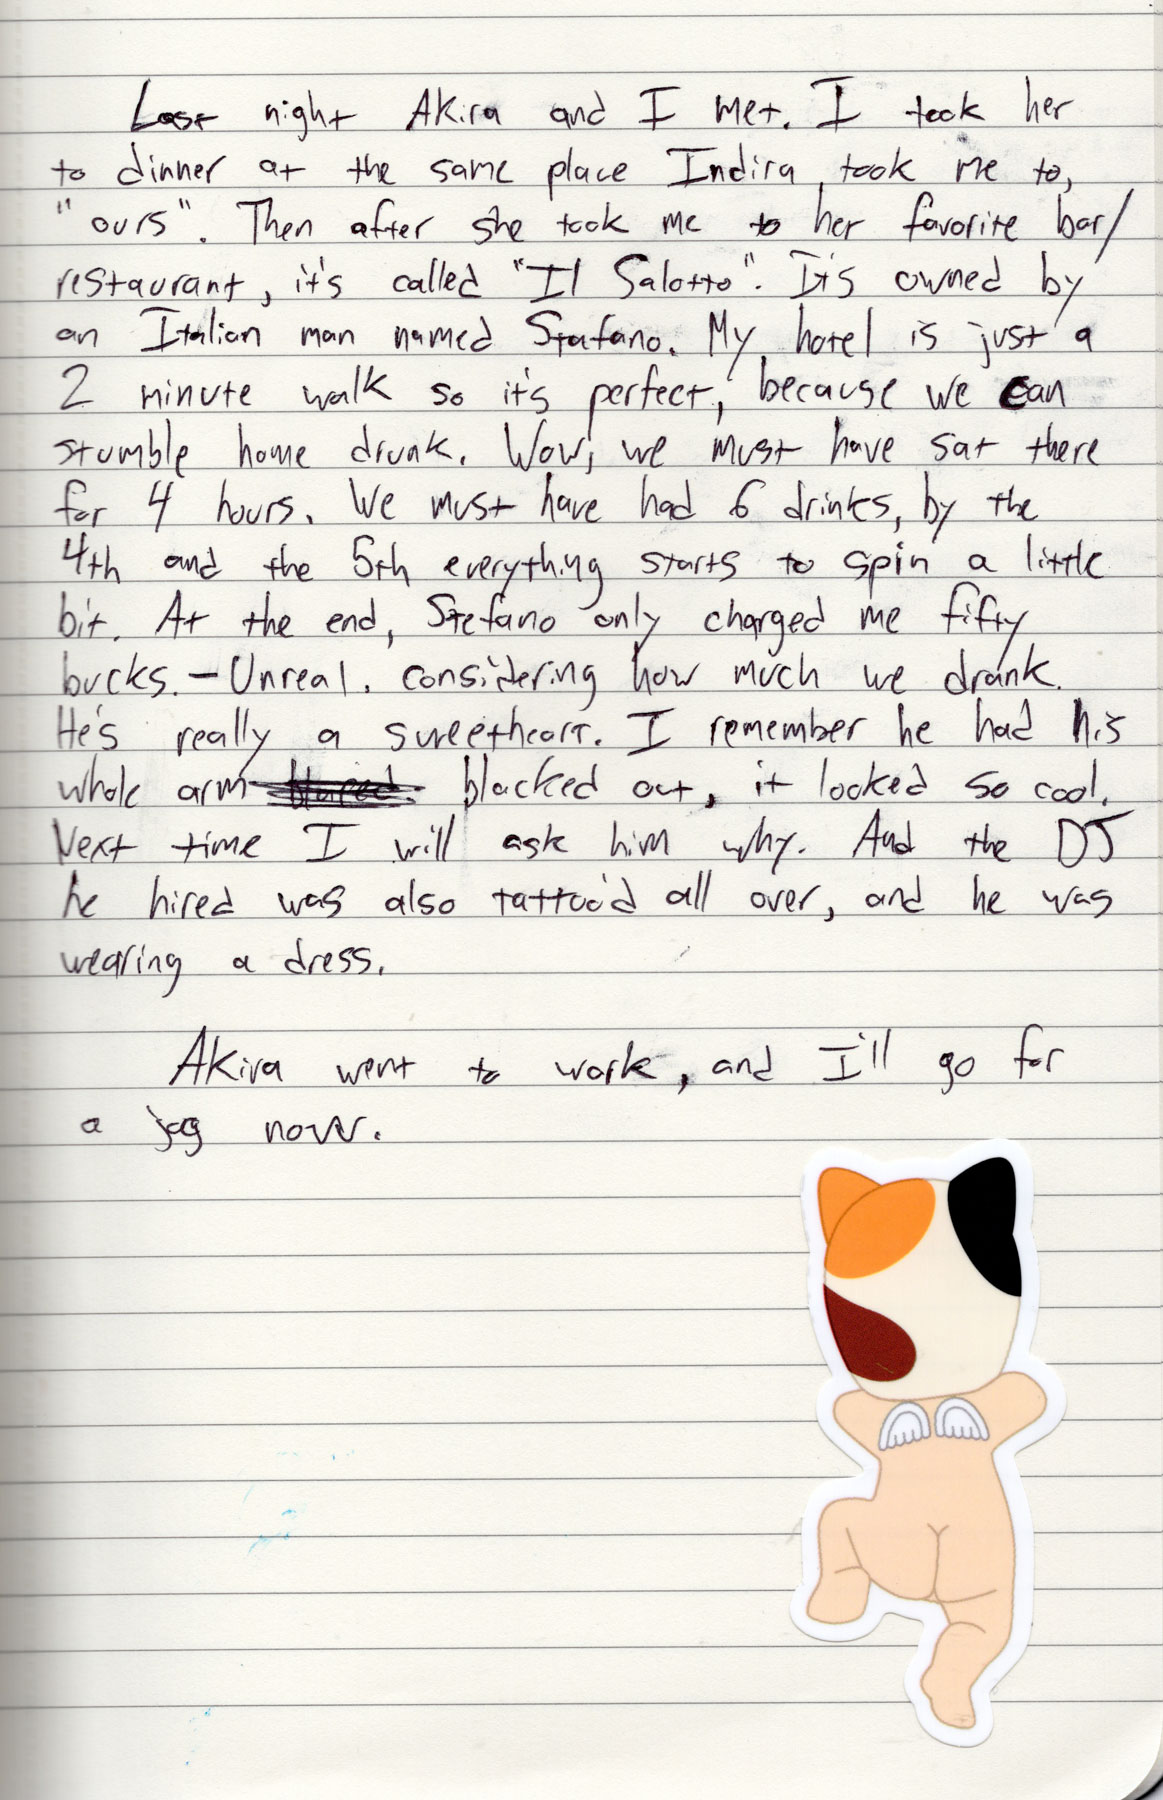 Last night Akira and I met. I took her
to dinner at the same place Indira took me to,
"ours". Then after she took me to her favorite bar/
restaurant, it's called "Il Salotto". It's owned by
an Italian man named Stafano. My hotel is just a
2 minute walk so it's perfect, because we can
stumble home drunk. Wow, we must have sat there
for 4 hours. We must have had 6 drinks, by the
4th and the 5th everything starts to spin a little
bit. At the end, Stefano only charged me fifty
bucks. - Unreal. considering how much we drank.
He's really a sweetheart. I remember he had his
whole arm blacked out, it looked so cool.
Next time I will ask him why. And the DJ
he hired was also tattoo'd all over, and he was
wearing a dress.
Akira went to work, and I'll go for
a jog now.